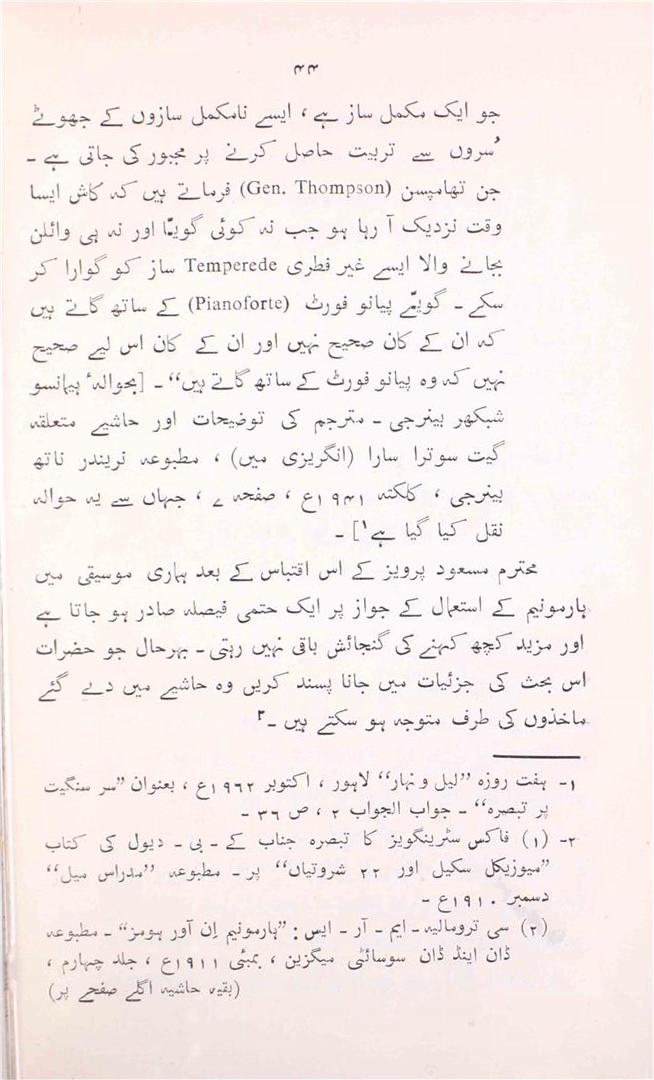 ۴۴
جو ایک مکمل ساز ہے ، ایسے نامکمل سازوں کے جھوٹے
سُروں سے تربیت حاصل کرنے پر مجبور کی جاتی ہے ۔
جن تھامپسن (Gen. Thompson) فرماتے ہیں کہ کاش ایسا
وقت نزدیک آ رہا ہو جب نہ کوئی گویّا اور نہ ہی وائلن
بجانے والا ایسے غیر فطری Temperede ساز کو گوارا کر
سکے ۔ گویّے پیانو فورٹ (Pianoforte) کے ساتھ گاتے ہیں
کہ ان کے کان صحیح نہیں اور ان کے کان اس لیے صحیح
نہیں کہ وہ پیانو فورٹ کے ساتھ گاتے ہیں“ ۔ [بحوالہٴ ہیمانسو
شبکھر بینرجی ۔ مترجم کی توضیحات اور حاشیے متعلقہ
گیت سوترا سارا (انگریزی میں) ، مطبوعہ نریندر ناتھ
بینرجی ، کلکتہ ۱۹۴۱ع ، صفحہ ۷ ، جہاں سے یہ حوالہ
نقل کیا گیا ہے۱] ۔
محترم مسعود پرویز کے اس اقتباس کے بعد ہماری موسیقی میں
ہارمونیم کے استعمال کے جواز پر ایک حتمی فیصلہ صادر ہو جاتا ہے
اور مزید کچھ کہنے کی گنجائش باقی نہیں رہتی ۔ بہرحال جو حضرات
اس بحث کی جزئیات میں جانا پسند کریں وہ حاشیے میں دیے گئے
ماخذوں کی طرف متوجہ ہو سکتے ہیں ۔۲
۱۔ ہفت روزہ ”لیل و نہار“ لاہور ، اکتوبر ۱۹۶۲ع ، بعنوان ”سر سنگیت
پر تبصرہ“ ۔ جواب الجواب ۲ ، ص ۳۶ ۔
۲۔ (۱) فاکس سٹرینگویز کا تبصرہ جناب کے ۔ بی ۔ دیول کی کتاب
”میوزیکل سکیل اور ۲۲ شروتیاں“ پر ۔ مطبوعہ ”مدراس میل“
دسمبر ۱۹۱۰ع ۔
(۲) سی ترومالیہ ۔ ایم ۔ آر ۔ ایس : ”ہارمونیم اِن آور ہومز“ ۔ مطبوعہ
ڈان اینڈ ڈان سوسائٹی میگزین ، بمبئی ۱۹۱۱ع ، جلد چہارم ،
(بقیہ حاشیہ اگلے صفحے پر)